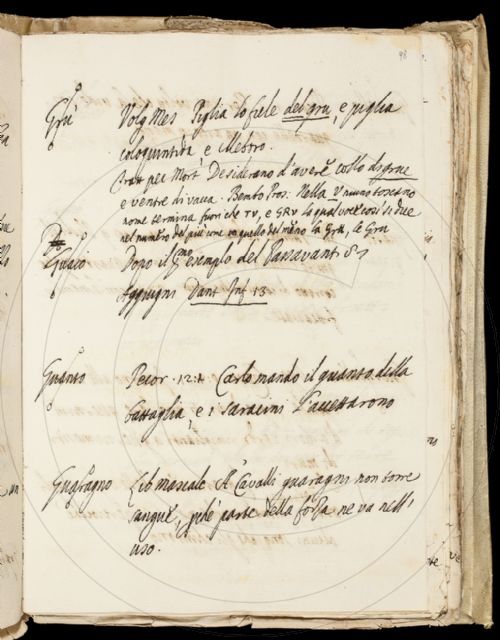 98
Grù Volg Mes Piglia lo fiele del gru, e piglia
coloquintida, e elleboro.
per Mort. Desiderano d'avere collo di grue
e ventre di vacca. Bembo Pros: Nella V niuno toscano
nome termina fuori che TV, e GRV la qual voce così si dice
nel numero del più come in quello del meno la Gru, le Gru
Guaio Dopo il esemplo del Passavant
Aggiugni Dant Inf 13
Guanto Pecor. 12.1 Carlo mandò il guanto della
battaglia, e i Saracini l'accettarono
Guaragno Lib mascalc A Cavalli guaragni non torre
sangue, perchè parte della forza ne va nell'
uso.